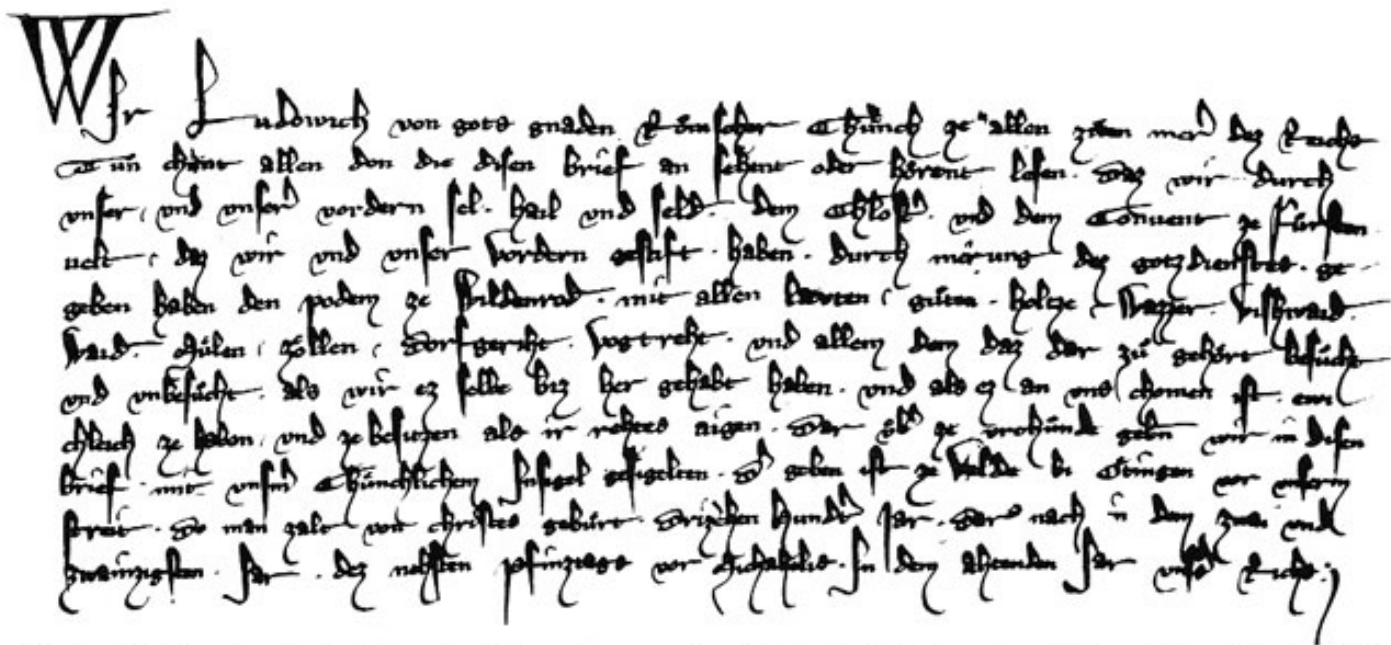 Wir Ludowich von gots gnaden Römscher Chünch ze allen ziten merer dez Reichs
Tun chunt allen den die disen brief an sehent oder hörent lesen. Daz wir durch
vnser, vnd vnserer vordern sel. hail vnd seld. dem Chloster. vnd dem Conuent ze fürsten
uelt, daz wir vnd vnser vordern gestift. haben. durch merung dez gotzdienstes. ge
geben haben den podem ze Wildenrod. mit allen leuten, guten. holtze, Wazzer. Vischwaid.
Waid. Mülen, zöllen, dorfgeriht. Vogtreht. vnd allem dem daz dar zu gehört besucht
vnd vnbesucht. als wir ez selbe biz her gehabt haben. vnd als ez an vns chomen ist. ewi
chleich ze haben, vnd ze besitzen als ir rehtes aigen. Dar über ze vrchünde geben wir in disen
brief. mit vnserm Chünchlichem Insigel gesigelten. Der geben ist ze Velde bi Ötingen vor vnserm
streit. Do man zalt von christes gebürt. Drizehen Hundert Jar. Dar nach in dem zwai vnd
zwainzigsten. Jar. dez nehsten pfinztags vor Michahelis. In dem ahtenden Jar vnsers Richs.